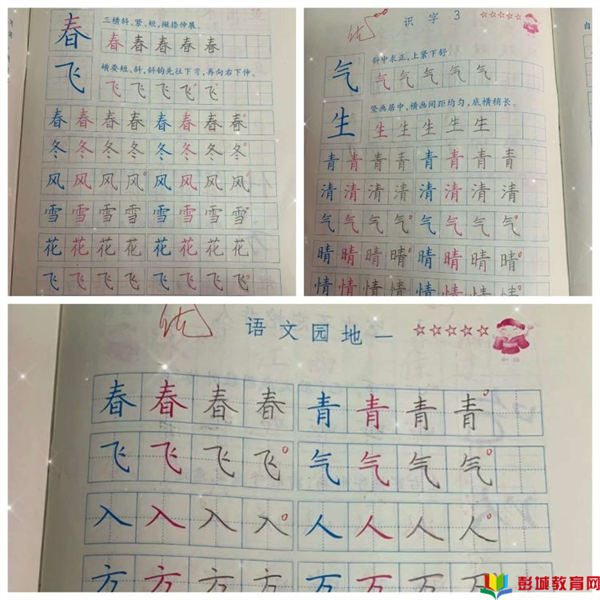 春 三横斜、紧、短，撇捺伸展。
春春春春春
飞 横要短、斜，斜钩先往下弯，再向右下伸。
飞飞飞飞飞
春春春春春春春春
冬冬冬冬冬冬冬冬
风风风风风风风风
雪雪雪雪雪雪雪雪
花花花花花花花花
飞飞飞飞飞飞飞飞
优 识字 3
气 斜中求正，上紧下舒
气气气气气
生 竖画居中，横画间距均匀，底横稍长。
生生生生生
青青青青青青青青
清清清清清清清清
气气气气气气气气
晴晴晴晴晴晴晴晴
情情情情情情情情
优 语文园地一
春春春春 青青青青
飞飞飞飞 气气气气
入入入入 人人人人
方方方方 万万万万
彭城教育网